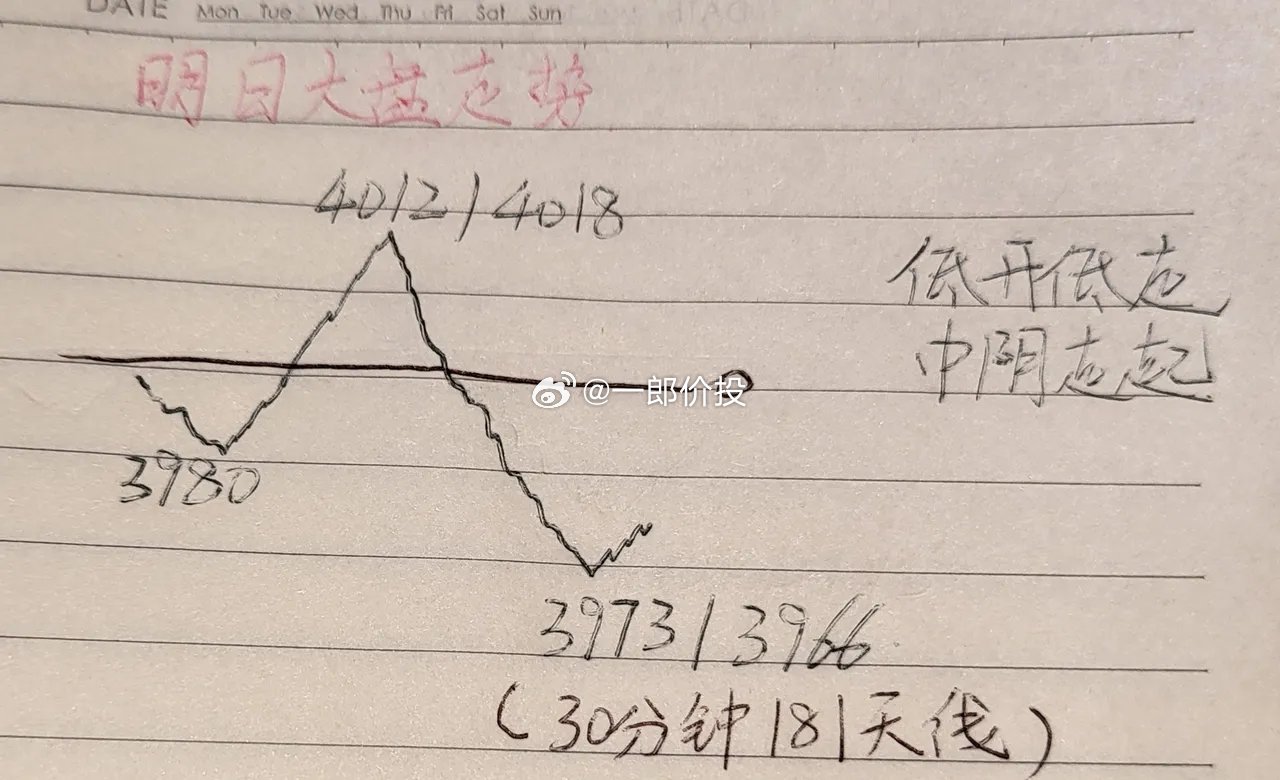 DATE Mon Tue Wed Thu Fri Sat Sun
明日大盘走势
4012/4018
低开低走
中阴走起
@一郎价投
3980
3973/3966
(30分钟181天线)